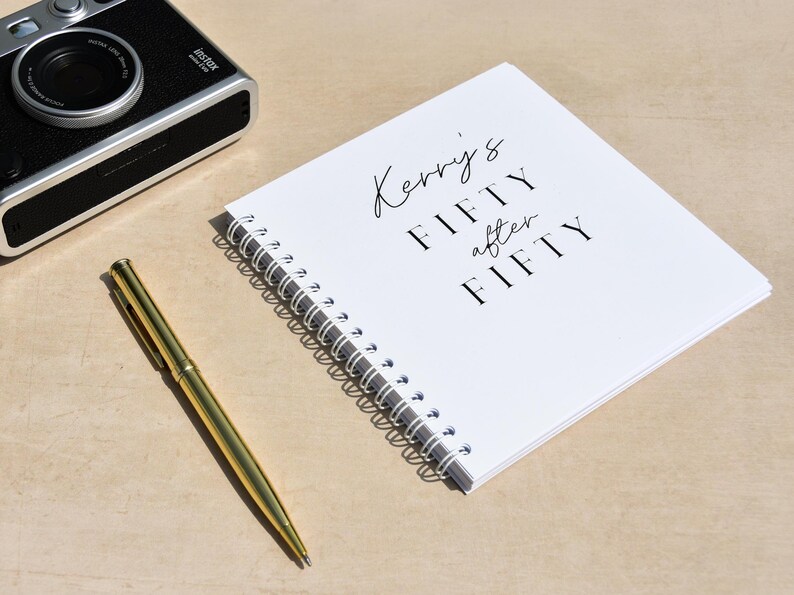 instax
mini Evo
INSTAX LENS 28mm F2.0
FOCUS RANGE 0.1m - ∞
Kerry's
FIFTY
after
FIFTY